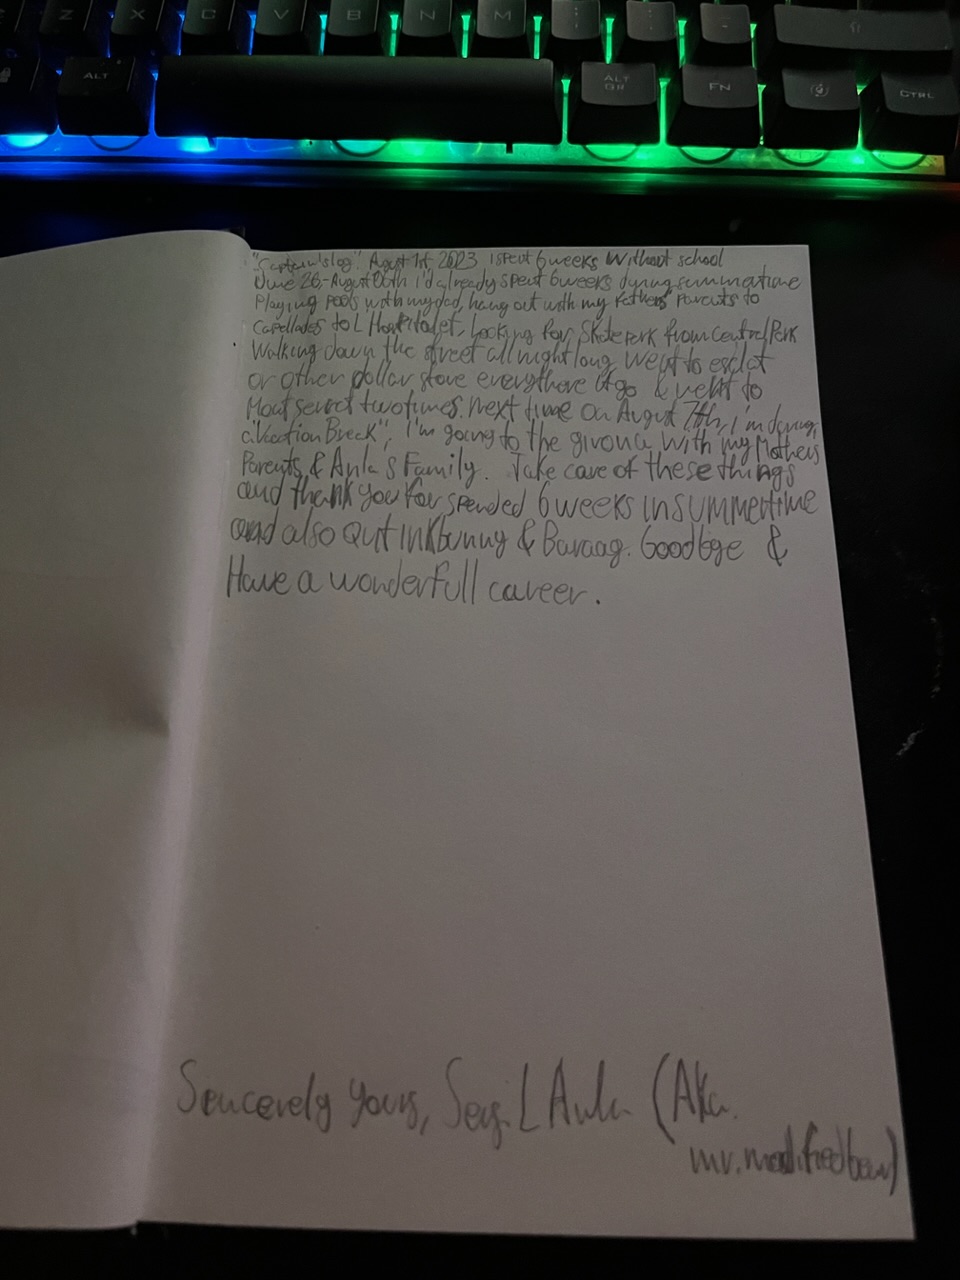 Z X C V B N M
ALT ALT GR FN CTRL
"Captain's log". August 1st 2023 I spent 6 weeks Without school
June 26-August 00th i'd already spent 6 weeks during summertime
Playing pools with my dad, hang out with my Fathers Parents to
Capellades to L Hospitalet, Looking for Skatepark from Central Perk
Walking down the street all night long, Went to esclat
or other dollar store everythere Ot go & went to
Montserrat two times. next time on August 7th, i'm during
a "Vacation Breck", i'm going to the girona with my Mothers
Parents & Anla s Family. Take care of these things
and thank you for spended 6 weeks in summertime
and also Quit Inkbunny & Baraag. Goodbye &
Have a wonderfull career.
Sencerely yours, Sergi L (Aka.
mr.modifiedbear)